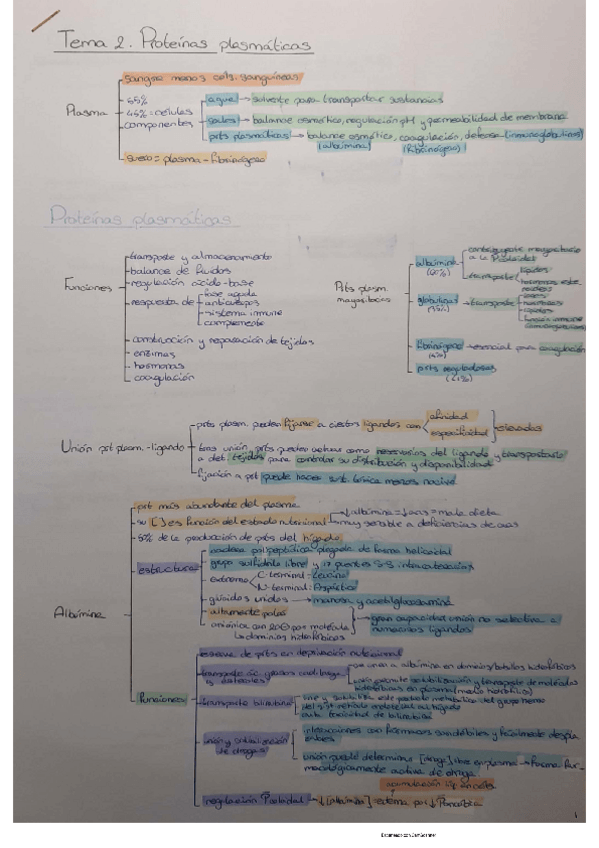 Tema 2. Proteínas plasmáticas
Plasma
sangre menos cels. sanguíneas
55%
45% = células
componentes
agua → solvente para transportar sustancias
sales → balance osmótico, regulación pH y permeabilidad de membrana
prts plasmáticas → balance osmótico, coagulación, defensa (inmunoglobulinas)
(albúmina) (fibrinógeno)
suero = plasma - fibrinógeno
Proteínas plasmáticas
Funciones
transporte y almacenamiento
balance de fluidos
regulación ácido-base
respuesta de
fase aguda
anticuerpos
sistema inmune
complemento
construcción y reparación de tejidos
enzimas
hormonas
coagulación
Prts plasm.
mayoritarias
albúmina
transporte
lípidos
globulinas → transporte
fibrinógeno → esencial para coagulación
(4%)
prts reguladoras
(<1%)
Unión prt plasm.-ligando
prts plasm. pueden fijarse a ciertos ligandos con
afinidad
especificidad
elevadas
tras unión, prts pueden actuar como reservorios del ligando y transportarlo
a det. tejidos para controlar su distribución y disponibilidad
fijación a prt puede hacer sust. tóxica menos nociva
Albúmina
prt más abundante del plasma
su [ ] es función del estado nutricional
↓albúmina = ↓aas = mala dieta
muy sensible a deficiencias de aas
de la producción de prts del hígado
estructura
cadena polipeptídica plegada de forma helicoidal
grupo sulfhidrilo libre y 17 puentes S-S intracatenarios
extremo
C-terminal:
N-terminal:
glúcidos unidos → manosa y acetilglucosamina
altamente polar
por molécula
dominios hidrofóbicos
gran capacidad unión no selectiva a
numerosos ligandos
funciones
reserva de prts en deprivación nutricional
transporte
se unen a albúmina en dominio/bolsillos hidrofóbicos
unión permite solubilización y transporte de moléculas
hidrofóbicas en plasma (medio hidrofílico)
transporte bilirrubina
une y solubiliza este producto metabólico del grupo hemo
del retículo endotelial al hígado
evita toxicidad de bilirrubina
unión y
de drogas
interacciones con fármacos
unión puede determinar [droga] libre en plasma → forma far-
macológicamente activa de droga
regulación → ↓[albúmina] = edema por ↓
acumulación líq.
1